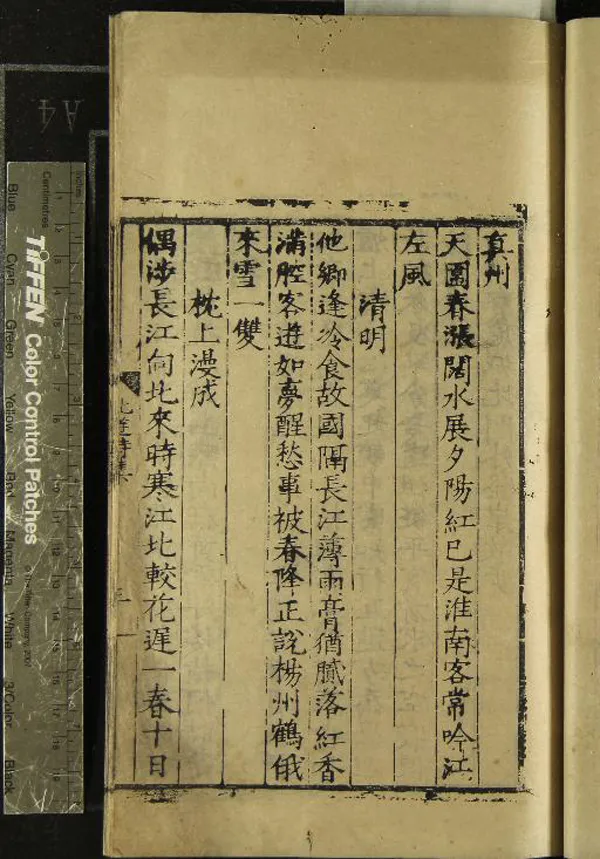 真州
天圍春漲闊水展夕陽紅已是淮南客常吟江
左風
清明
他鄉逢冷食故國隔長江薄雨膏猶膩落紅香
滿腔客遊如夢醒愁事被春降正說楊州鶴俄
來雪一雙
枕上漫成
偶涉長江向北來時寒江北較花遲一春十日
北遊詩集
A4
inches
Centimetres
TIFFEN Color Control Patches
Blue
Cyan
Green
Yellow
Red
Magenta
White
3/Color
Black